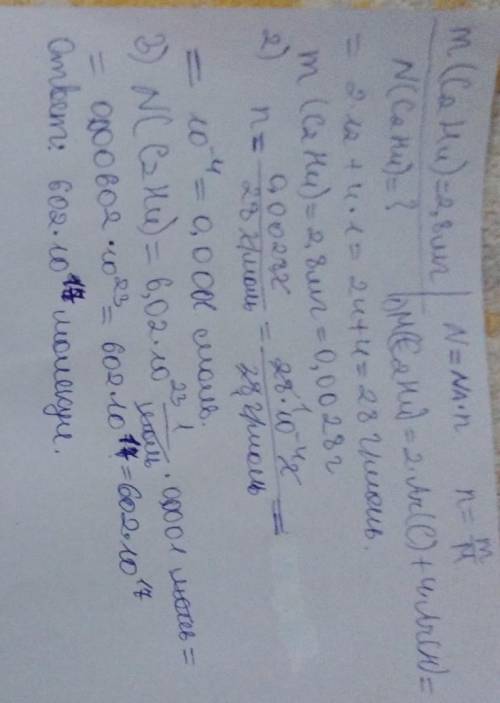 m(C2H4)=2,8мг | N=NA·n n=m/M
N(C2H4)=? | 1) M(C2H4)=2·Ar(C)+4·Ar(H)=
=2·12+4·1=24+4=28 г/моль.
m(C2H4)=2,8мг=0,0028г
2) n= 0,0028г/28г/моль = 28·10⁻⁴г/28г/моль =
= 10⁻⁴=0,0001 моль.
3) N(C2H4)=6,02·10²³ 1/моль · 0,0001 моль=
= 0,000602·10²³=602·10¹⁷=602·10¹⁷
Ответ: 602·10¹⁷ молекул.